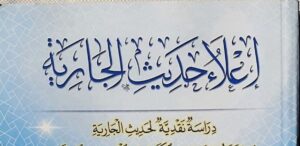 إعلاء حديث الجارية
دراسة نقدية لحديث الجارية